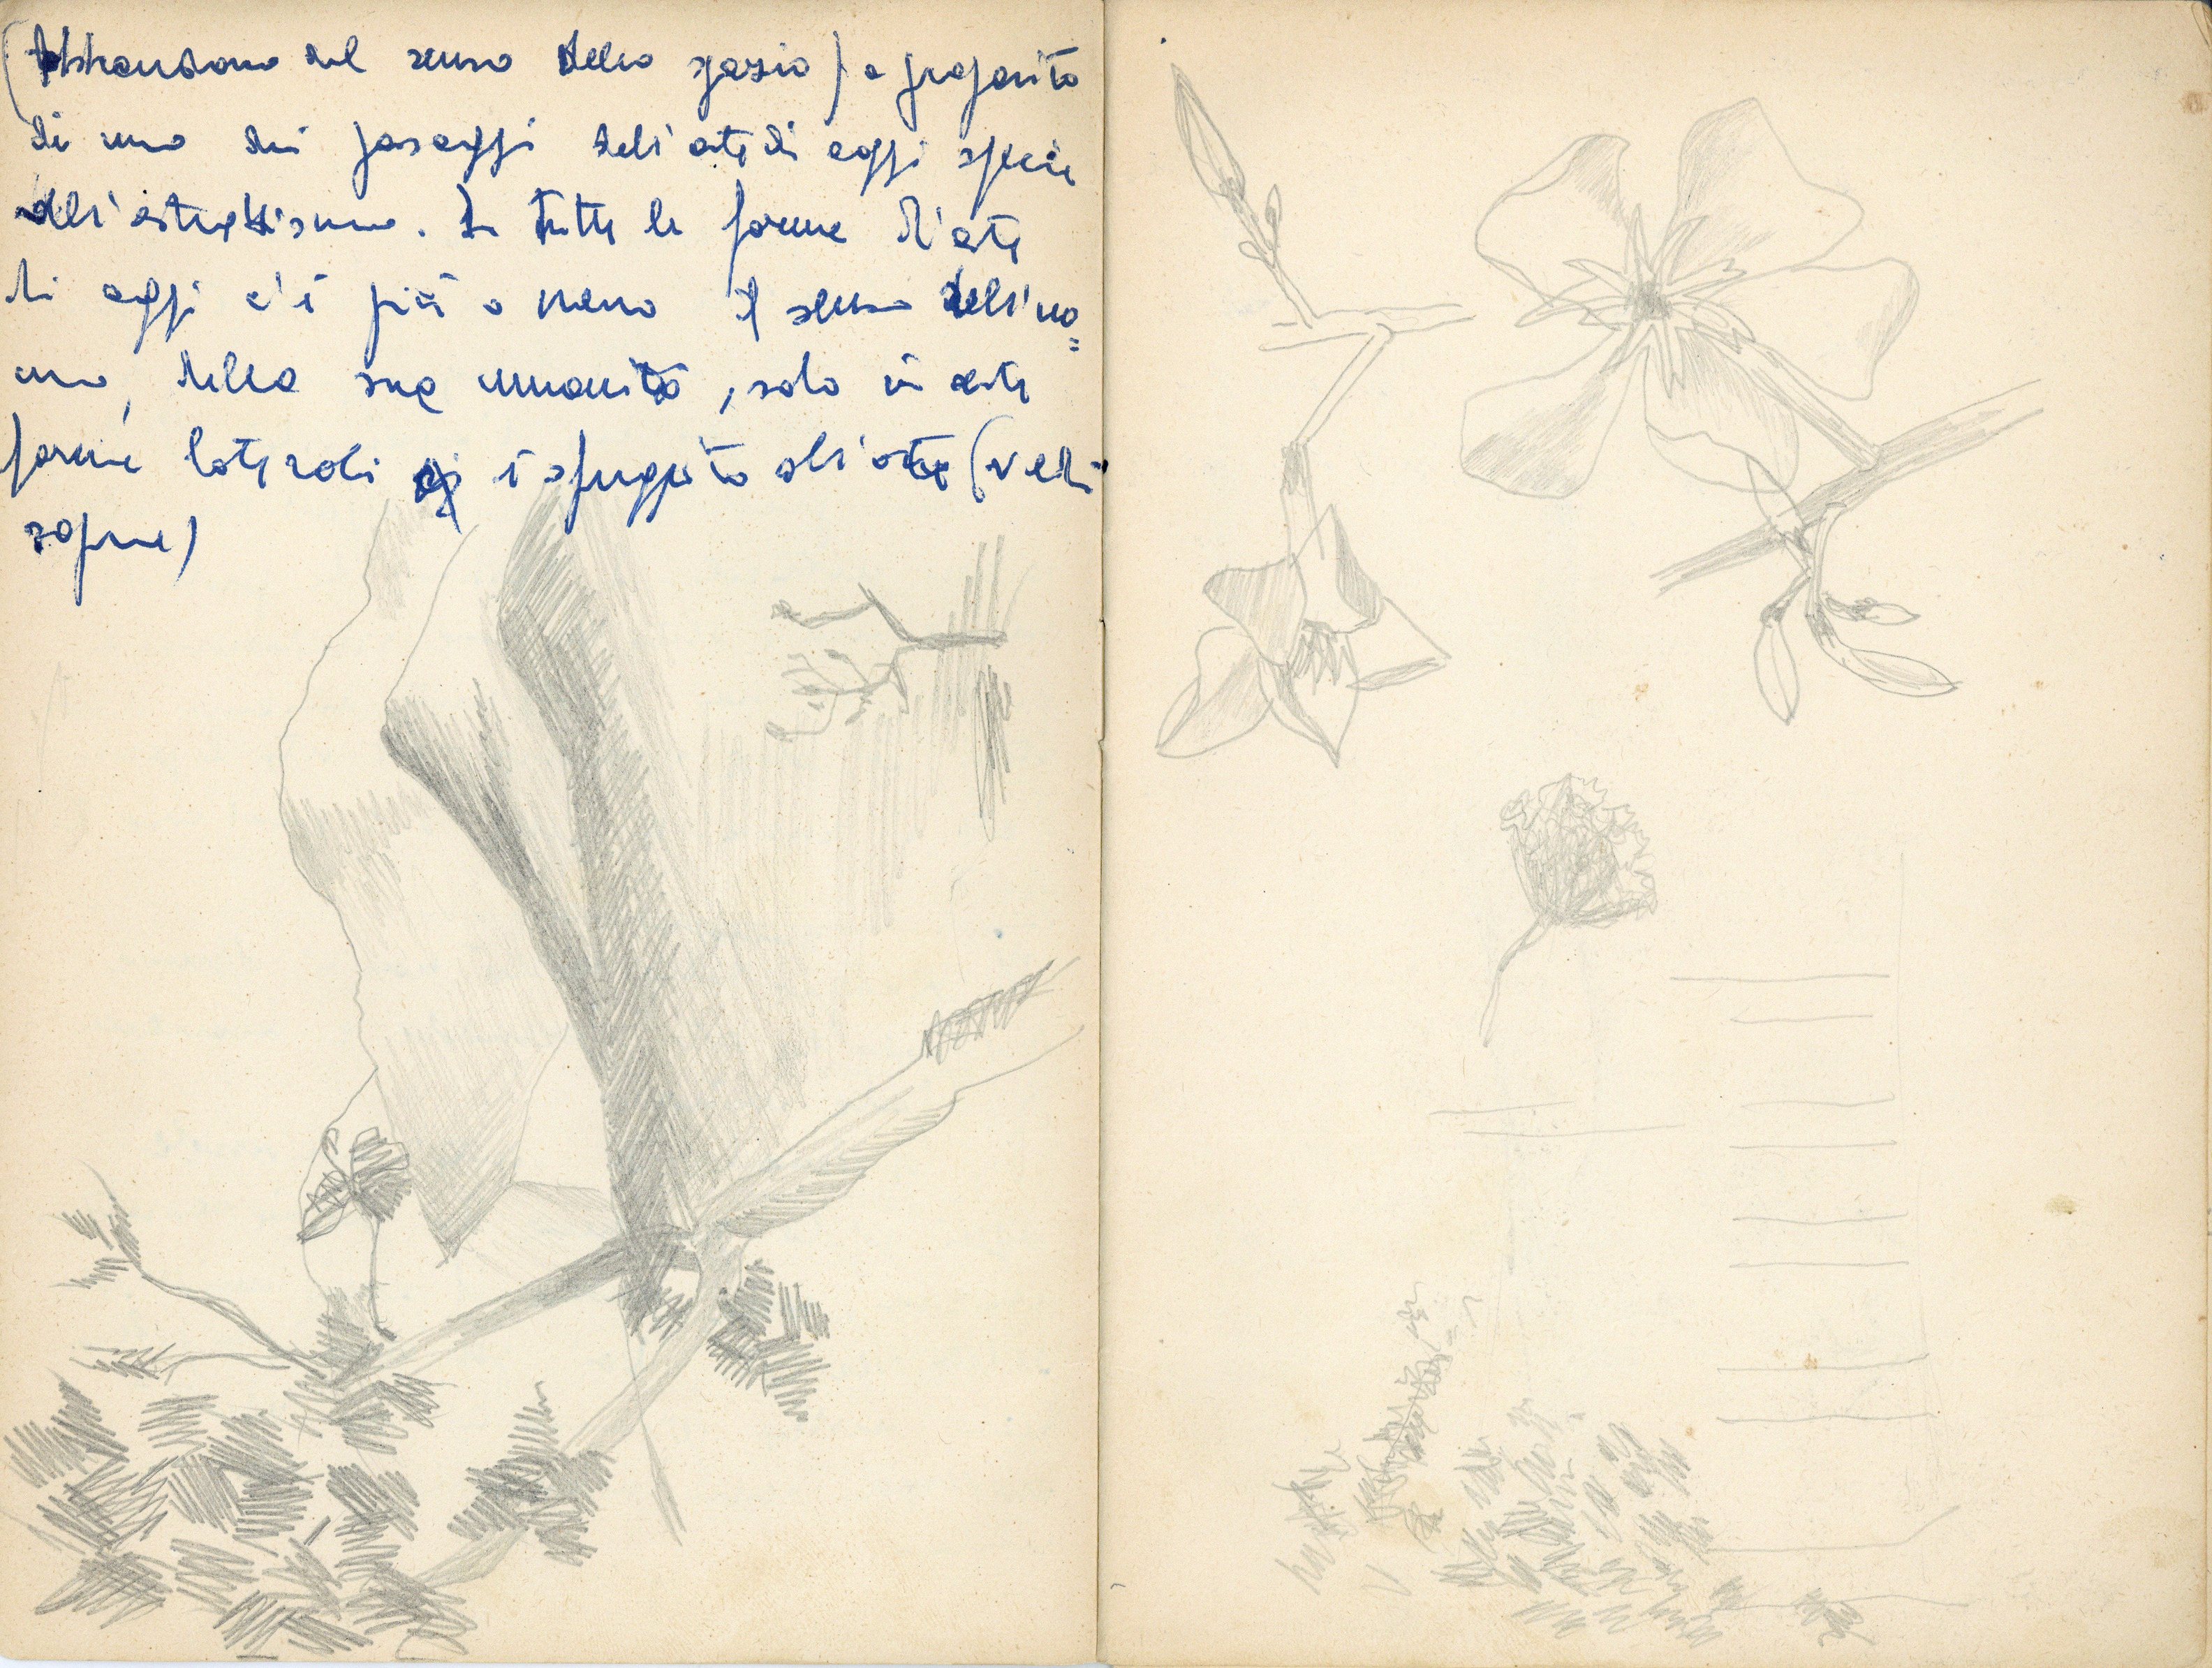 (Astrandomo del senso dello spazio) a proposito
di uno dei passaggi dell'arte di oggi specie
dell'astrattismo. In tutte le forme d'arte
di oggi c'è più o meno il senso dell'uo=
mo, della sua umanità, solo in certe
forme laterali si è sfuggito all'arte (vedi
sopra)